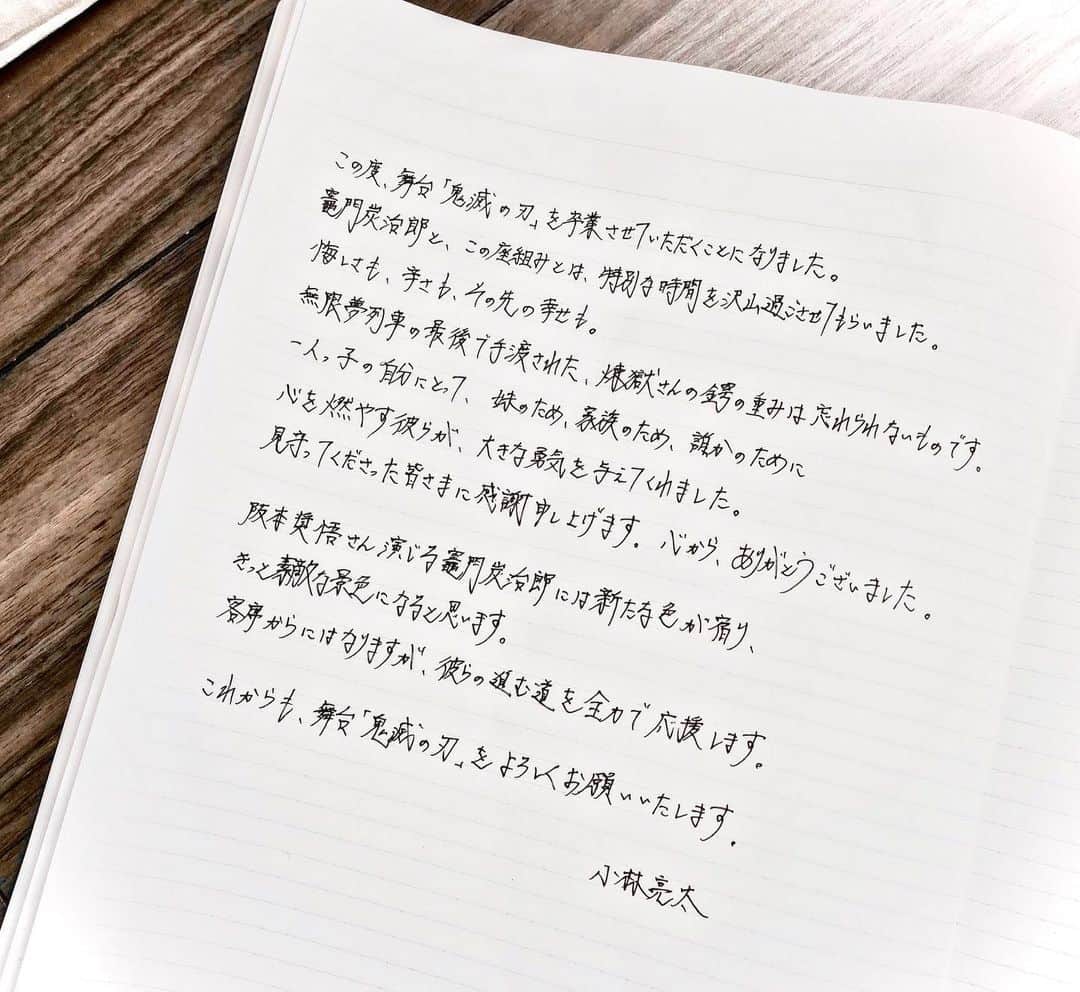 この度、舞台「鬼滅の刃」を卒業させていただくことになりました。
竈門炭治郎と、この座組みとは、特別な時間を沢山過ごさせてもらいました。
悔しさも、辛さも、その先の幸せも。
無限夢列車の最後で手渡された、煉獄さんの鍔の重みは忘れられないものです。
一人っ子の自分にとって、妹のため、家族のため、誰かのために
心を燃やす彼らが、大きな勇気を与えてくれました。
見守ってくださった皆さまに感謝申し上げます。心から、ありがとうございました。
阪本奨悟さん演じる竈門炭治郎には新たな色が宿り、
きっと素敵な景色になると思います。
客席からにはなりますが、彼らの進む道を全力で応援します。
これからも、舞台「鬼滅の刃」をよろしくお願いいたします。
小林亮太